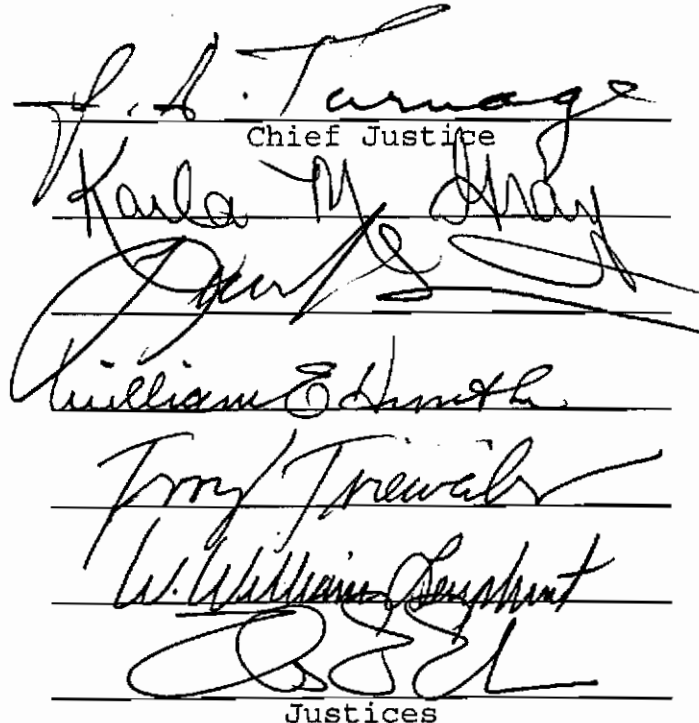 J. A. Turnage
Chief Justice
Karla M. Gray
William E Hunt
Terry Trieweiler
W. William Leaphart
Justices